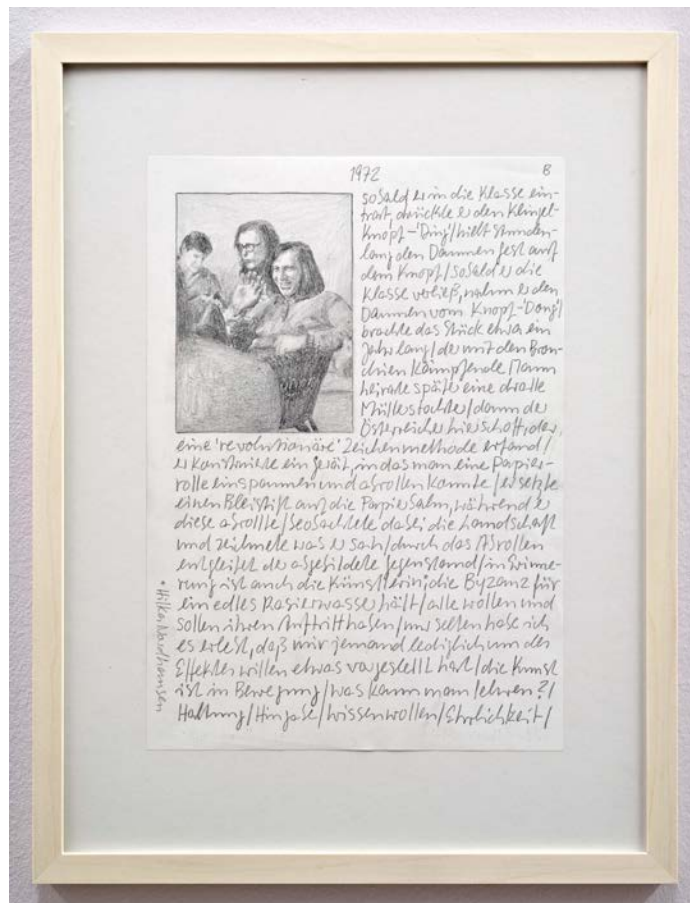 1972 8
sobald er in die Klasse ein-
trat, drückte er den Klingel-
Knopf-'Ding'/hielt stunden-
lang den Daumen fest auf
dem Knopf/sobald er die
Klasse verließ, nahm er den
Daumen vom Knopf-'Dong'/
brachte das Stück etwa ein
Jahr lang/der mit den Bron-
chien kämpfende Mann
heirate später eine dralle
Müllerstochter/dann der
Österreicher Hierschoff, der
eine 'revolutionäre' Zeichenmethode erfand/
er konstruierte ein Gerät, in das man eine Papier-
rolle einspannen und abrollen konnte/er setzte
einen Bleistift auf die Papierbahn, während er
diese abrollte/beobachtete dabei die Landschaft
und zeichnete was er sah/durch das Abrollen
entgleitet der abgebildete Gegenstand/in Erinne-
rung ist auch die Künstlerin, die Byzanz für
ein edles Rasierwasser hält/alle wollen und
sollen ihren Auftritt haben/nur selten habe ich
es erlebt, daß mir jemand lediglich um des
Effektes willen etwas vorgestellt hat/die Kunst
ist in Bewegung/was kann man lehren?/
Haltung/Hingabe/wissen wollen/Ehrlichkeit/
* Hilka Nordhausen